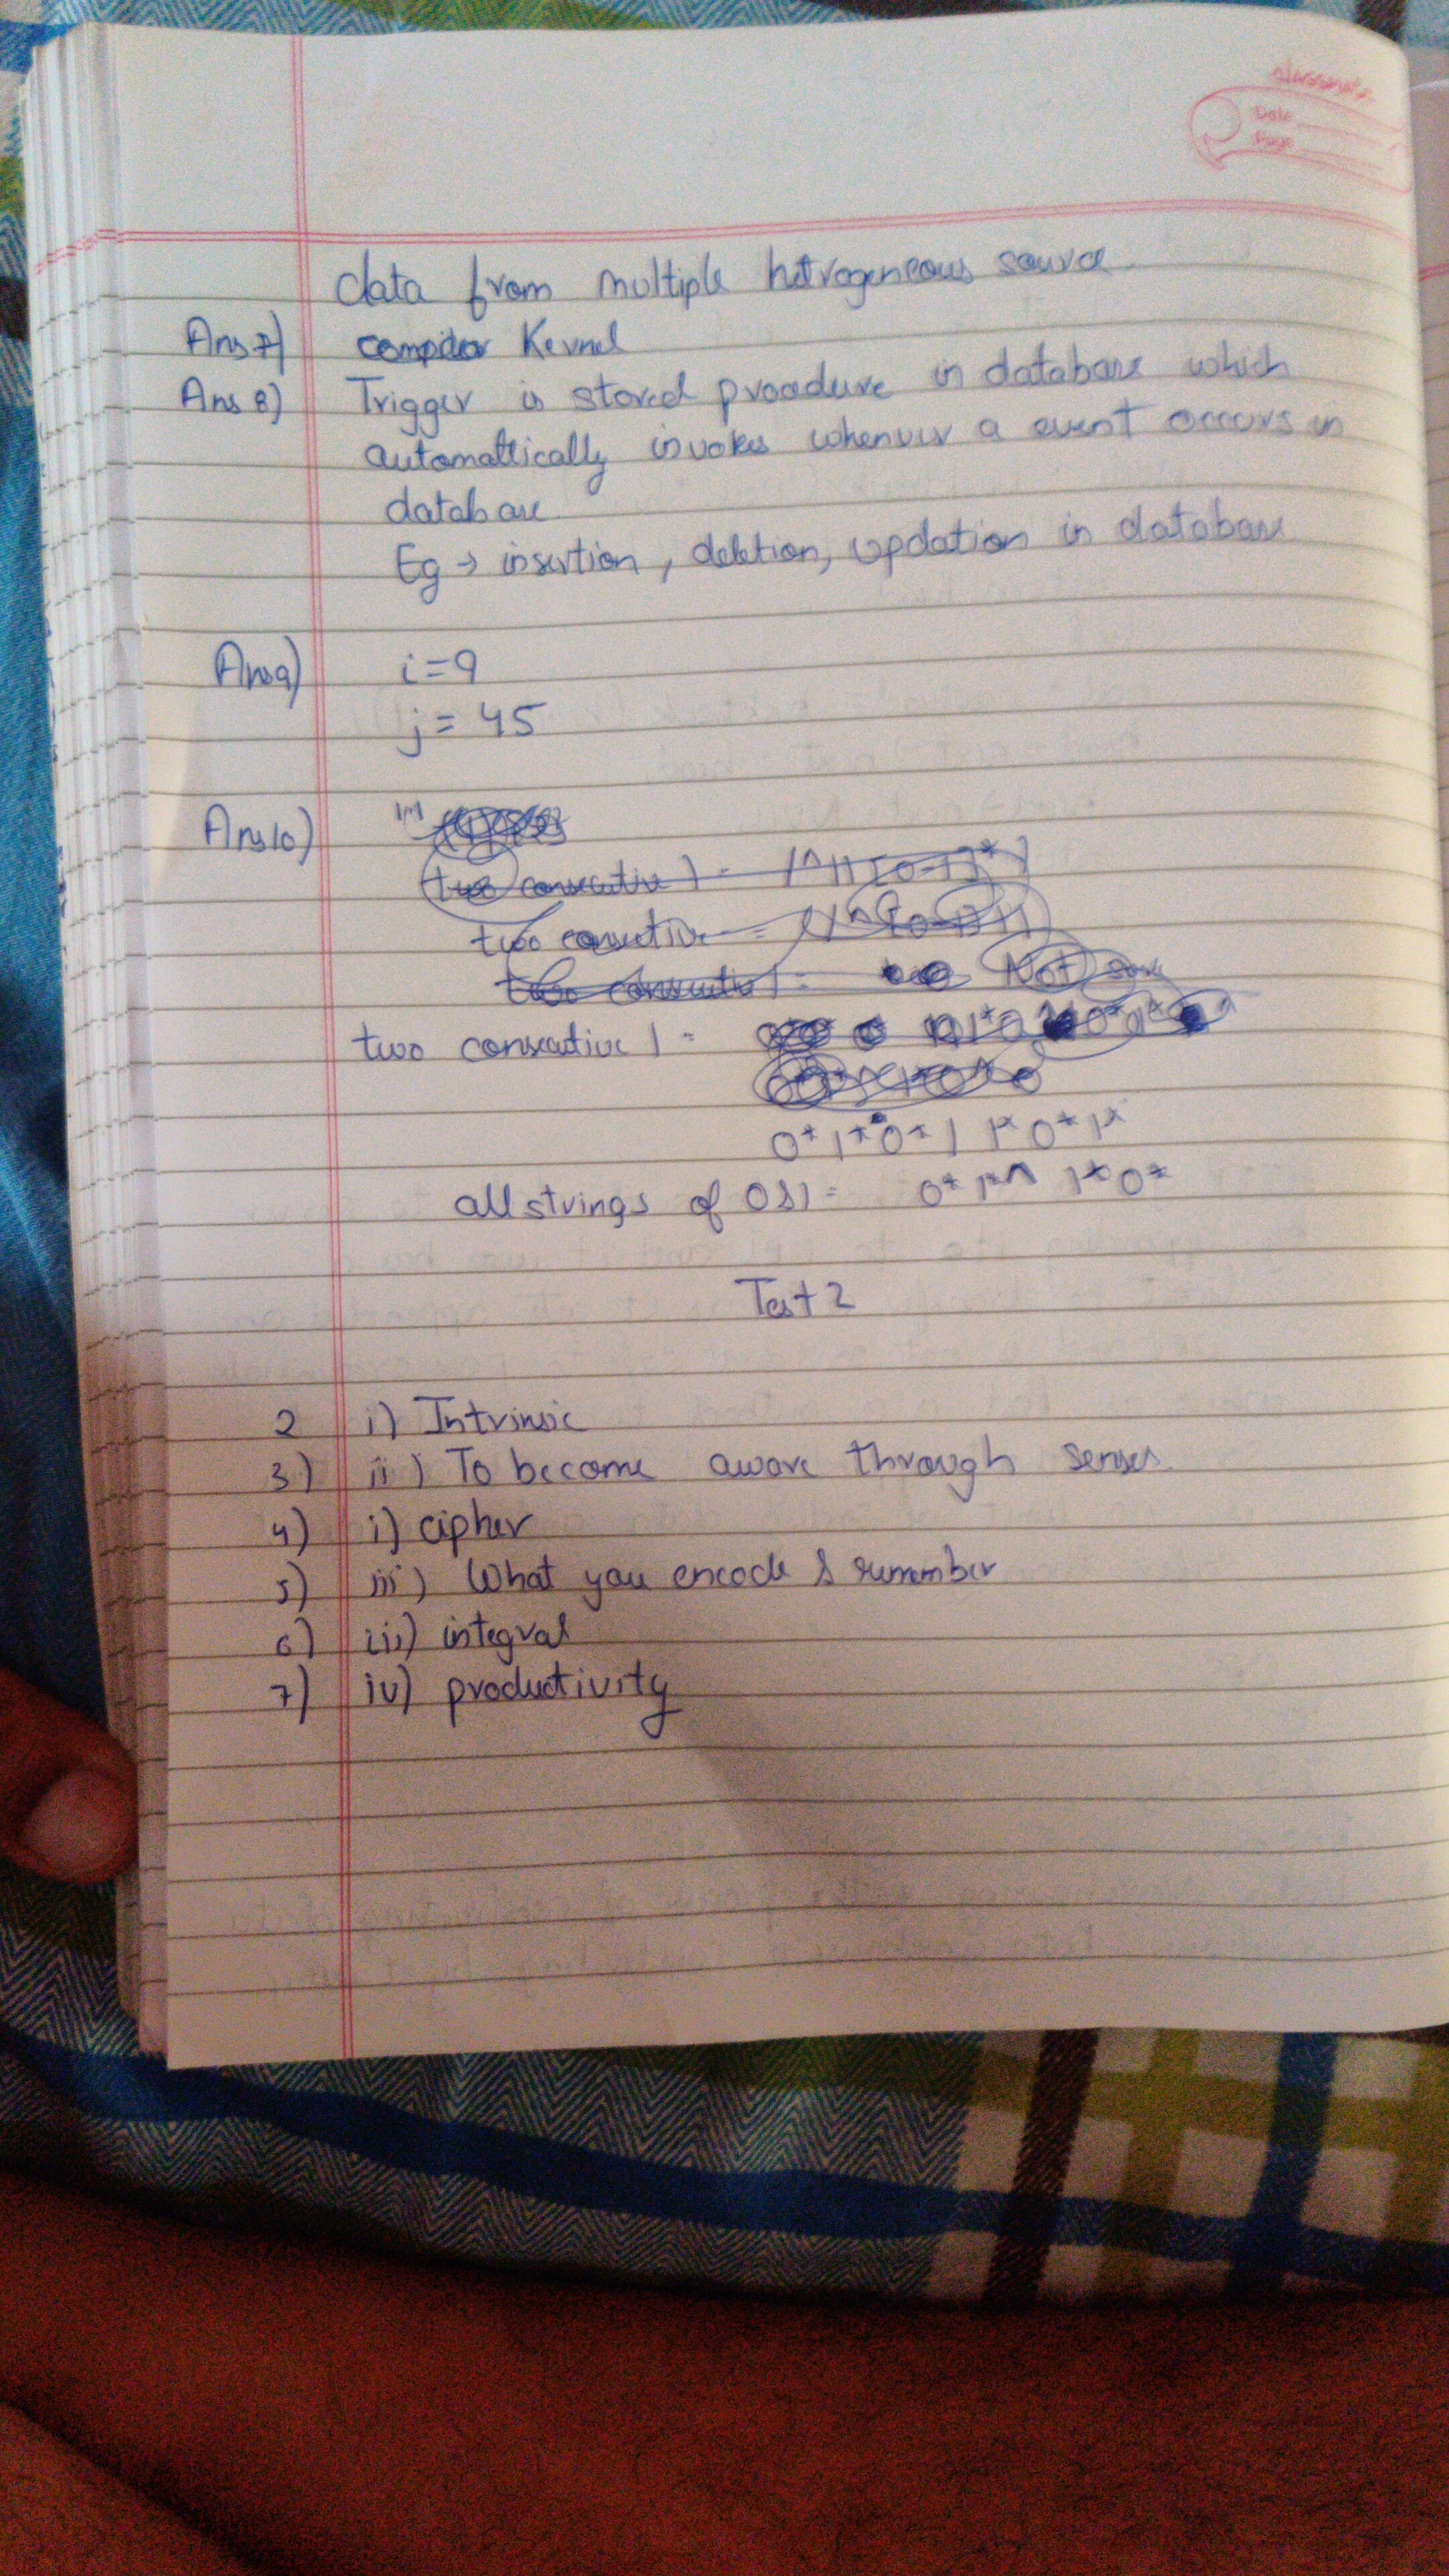 classmate
Date
Page
data from multiple hetrogeneous source
Ans 7) Kernel
Ans 8) Trigger is stored procedure in database which
automattically invokes whenever a event occurs in
database
Eg → insertion, deletion, updation in database
Ans 9) i=9
j= 45
Ans 10)
two consecutive
two consecutive 1 =
0*1*0*1 1*0*1*
all strings of 0&1= 0* 1* 1*0*
Test 2
2 i) Intrinsic
3) ii) To become aware through senses
4) i) cipher
5) iii) What you encode & remember
6) iii) integral
7) iv) productivity